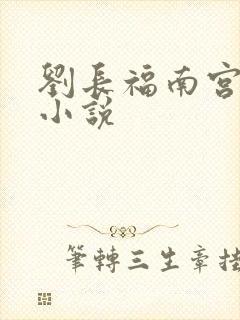 劉長福南宮
小說
筆轉三生章掛